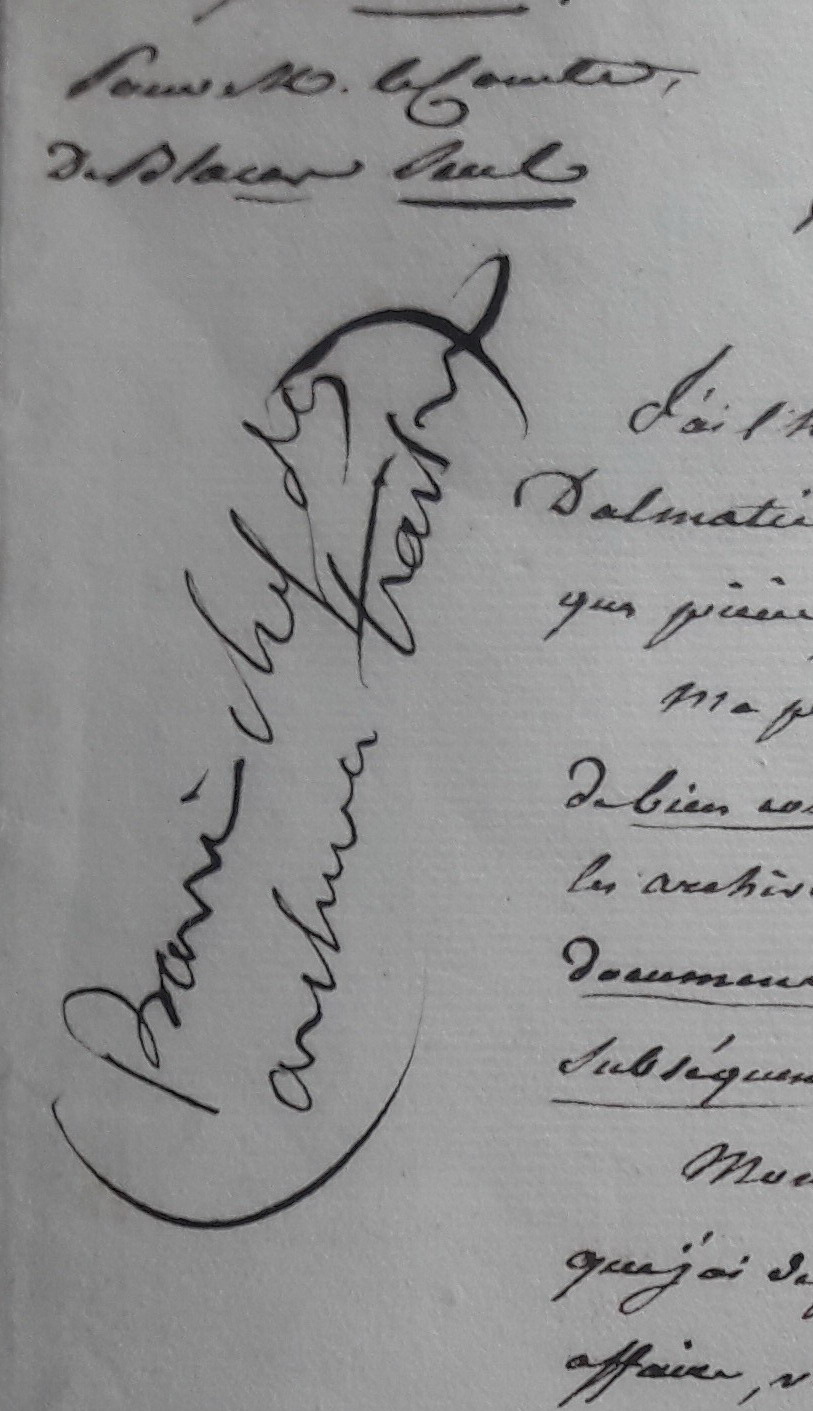 Pour M. le Comte,
De Blacas Seul
Barni chef des
archives
J'ai l'h
Dalmatie
que
ma p
de bien vou
les archiv
documens
subséquen
Mon
que j'ai de
affaire, v